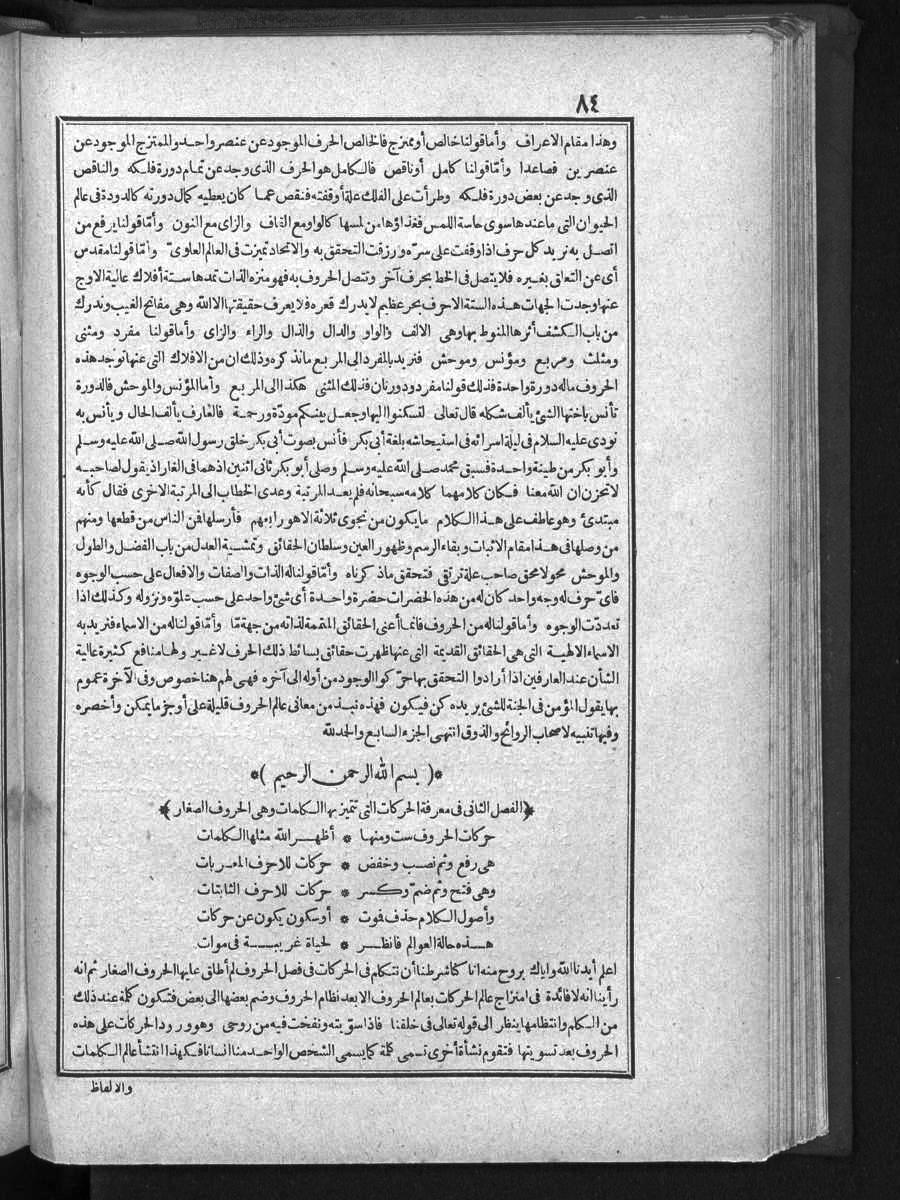 ٨٤
وهذا مقام الاعراف وأما قولنا خالص أو ممتزج فالخالص الحرف الموجود عن عنصر واحد والممتزج الموجود عن
عنصرين فصاعدا وأمّا قولنا كامل أو ناقص فالكامل هو الحرف الذى وجد عن تمام دورة فلكه والناقص
الذى وجد عن بعض دورة فلكه وطرأت على الفلك علة أوقفته فنقص عما كان يعطيه كمال دورته كالدودة فى عالم
الحيوان التى ما عندها سوى حاسة اللمس فغذاؤها من لمسها كالواو مع القاف والزاى مع النون وأمّا قولنا يرفع من
اتصل به نريد كل حرف اذا وقفت على سرّه ورزقت التحقق به والاتحاد تميزت فى العالم العلوىّ وأمّا قولنا مقدس
أى عن التعلق بغيره فلا يتصل فى الخط بحرف آخر وتتصل الحروف به فهو منزه الذات تمدها ستة أفلاك عالية الاوج
عنها وجدت الجهات هذه الستة الاحرف بحر عظيم لا يدرك قعره فلا يعرف حقيقتها الا الله وهى مفاتح الغيب وندرك
من باب الكشف أثرها المنوط بها وهى الالف والواو والدال والذال والراء والزاى وأما قولنا مفرد ومثنى
ومثلث ومربع ومؤنس وموحش فنريد بالمفرد الى المربع مانذكره وذلك ان من الافلاك التى عنها توجد هذه
الحروف ماله دورة واحدة فذلك قولنا مفرد ودورتان فذلك المثنى هكذا الى المربع وأما المؤنس والموحش فالدورة
تأنس باختها الشئ يألف شكله قال تعالى لتسكنوا اليها وجعل بينكم مودّة ورحمة فالعارف يألف الحال ويأنس به
نودى عليه السلام فى ليلة اسرائه فى استيحاشه بلغة أبى بكر فأنس بصوت أبى بكر خلق رسول الله صلى الله عليه وسلم
وأبو بكر من طينة واحدة فسبق محمد صلى الله عليه وسلم وصلى أبو بكر ثانى اثنين اذ هما فى الغار اذ يقول لصاحبه
لا تحزن ان الله معنا فكان كلامهما كلامه سبحانه فلم يعد المرتبة وعدى الخطاب الى المرتبة الاخرى فقال كأنه
مبتدئ وهو عاطف على هذا الكلام ما يكون من نجوى ثلاثة الا هو رابعهم فأرسلها فن الناس من قطعها ومنهم
من وصلها فى هذا مقام الاثبات وبقاء الرسم وظهور العين وسلطان الحقائق وتمشية العدل من باب الفضل والطول
والموحش محو لا محق صاحب علة ترتقى فتحقق ماذكرناه وأمّا قولنا له الذات والصفات والافعال على حسب الوجوه
فاىّ حرف له وجه واحد كان له من هذه الحضرات حضرة واحدة أى شئ واحد على حسب علوّه ونزوله وكذلك اذا
تعددّت الوجوه وأما قولنا له من الحروف فانما أعنى الحقائق المتممة لذاته من جهة مّا وأمّا قولنا له من الاسماء فنريد به
الاسماء الالهية التى هى الحقائق القديمة التى عنها ظهرت حقائق بسائط ذلك الحرف لا غير ولها منافع كثيرة عالية
الشأن عند العارفين اذا أرادوا التحقق بها حرّكوا الوجود من أوله الى آخره فهى لهم هنا خصوص وفى الآخرة عموم
بها يقول المؤمن فى الجنة للشئ يريده كن فيكون فهذه نبذ من معانى عالم الحروف قليلة على أوجز ما يمكن وأخصره
وفيها تنبيه لاصحاب الروائح والذوق انتهى الجزء السابع والحمد لله
*( بسم الله الرحمن الرحيم )*
﴿الفصل الثانى فى معرفة الحركات التى تتميز بها الكلمات وهى الحروف الصغار﴾
حركات الحروف ست ومنها * أظهر الله مثلها الكلمات
هى رفع وثم نصب وخفض * حركات للاحرف المعربات
وهى فتح وثم ضمّ وكسر * حركات للاحرف الثابتات
وأصول الكلام حذف فوت * أو سكون يكون عن حركات
هذه حالة العوالم فانظر * لحياة غريبة فى موات
اعلم أيدنا الله واياك بروح منه انا كنا شرطنا أن نتكلم فى الحركات فى فصل الحروف لم أطلق عليها الحروف الصغار ثم انه
رأينا انه لا فائدة فى امتزاج عالم الحركات بعالم الحروف الا بعد نظام الحروف وضم بعضها الى بعض فتكون كلمة عند ذلك
من الكلم وانتظامها ينظر الى قوله تعالى فى خلقنا فاذا سوّيته ونفخت فيه من روحى وهو ورود الحركات على هذه
الحروف بعد تسويتها فتقوم نشأة أخرى تسمى كلمة كما يسمى الشخص الواحد منا انسانا فهكذا انتشأ عالم الكلمات
والالفاظ